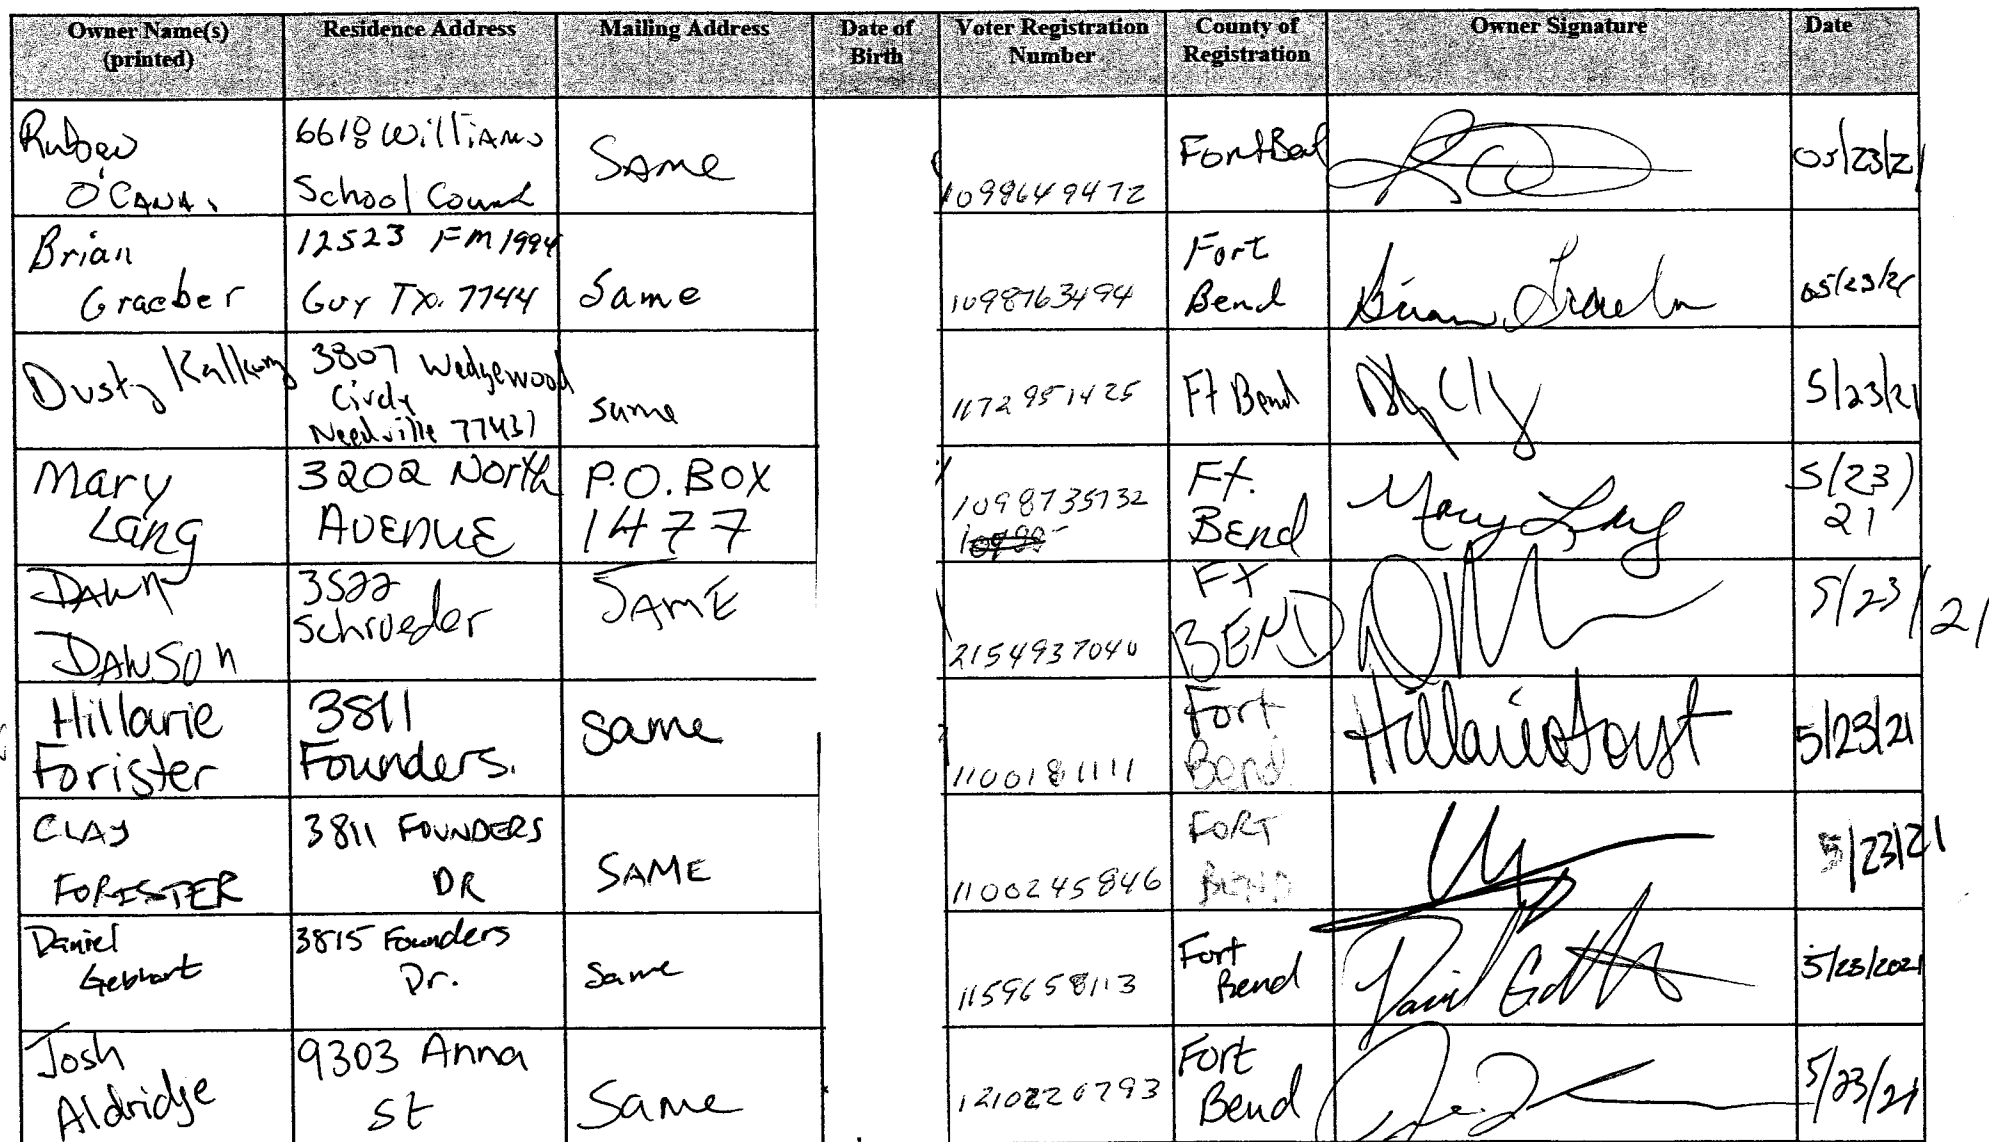 Owner Name(s) (printed) Residence Address Mailing Address Date of Birth Voter Registration Number County of Registration Owner Signature Date
Ruben O'CANA. 6618 Williams School Court SAME 1099649472 Fort Bend 05/23/21
Brian Graeber 12523 FM 1994 Guy TX. 7744 Same 1098763494 Fort Bend Brian Graeber 05/23/21
Dusty 3807 Wedgewood Circle Needville 77437) same 1172951425 Ft Bend 5/23/21
Mary Lang 3202 North AVENUE P.O. BOX 1477 1098735732 Ft. BEND Mary Lang 5/23/21
DAWN DAWSON 3522 Schroeder SAME 2154937040 Ft BEND 5/23/21
Hillarie Forister 3811 Founders. same 1100181111 Fort Bend 5/23/21
CLAY FORISTER 3811 FOUNDERS DR SAME 1100245846 FORT BEND 5/23/21
Daniel Gebhart 3815 Founders Dr. Same 1159658113 Fort Bend 5/23/2021
Josh Aldridge 9303 Anna St Same 1210220793 Fort Bend 5/23/21